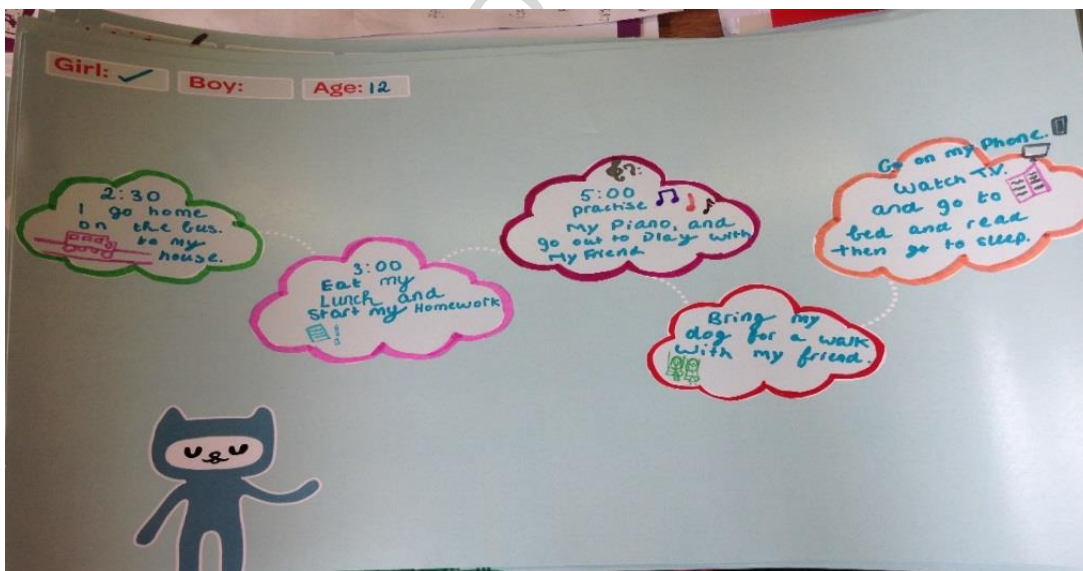 Girl: ✓
Boy:
Age: 12
2:30
I go home
on the bus.
to my
house.
3:00
Eat my
Lunch and
start my Homework
5:00
practise
My Piano, and
go out to Play with
My Friend
Bring my
dog for a walk
with my friend.
Go on my Phone.
Watch T.V.
and go to
bed and read
then go to sleep.